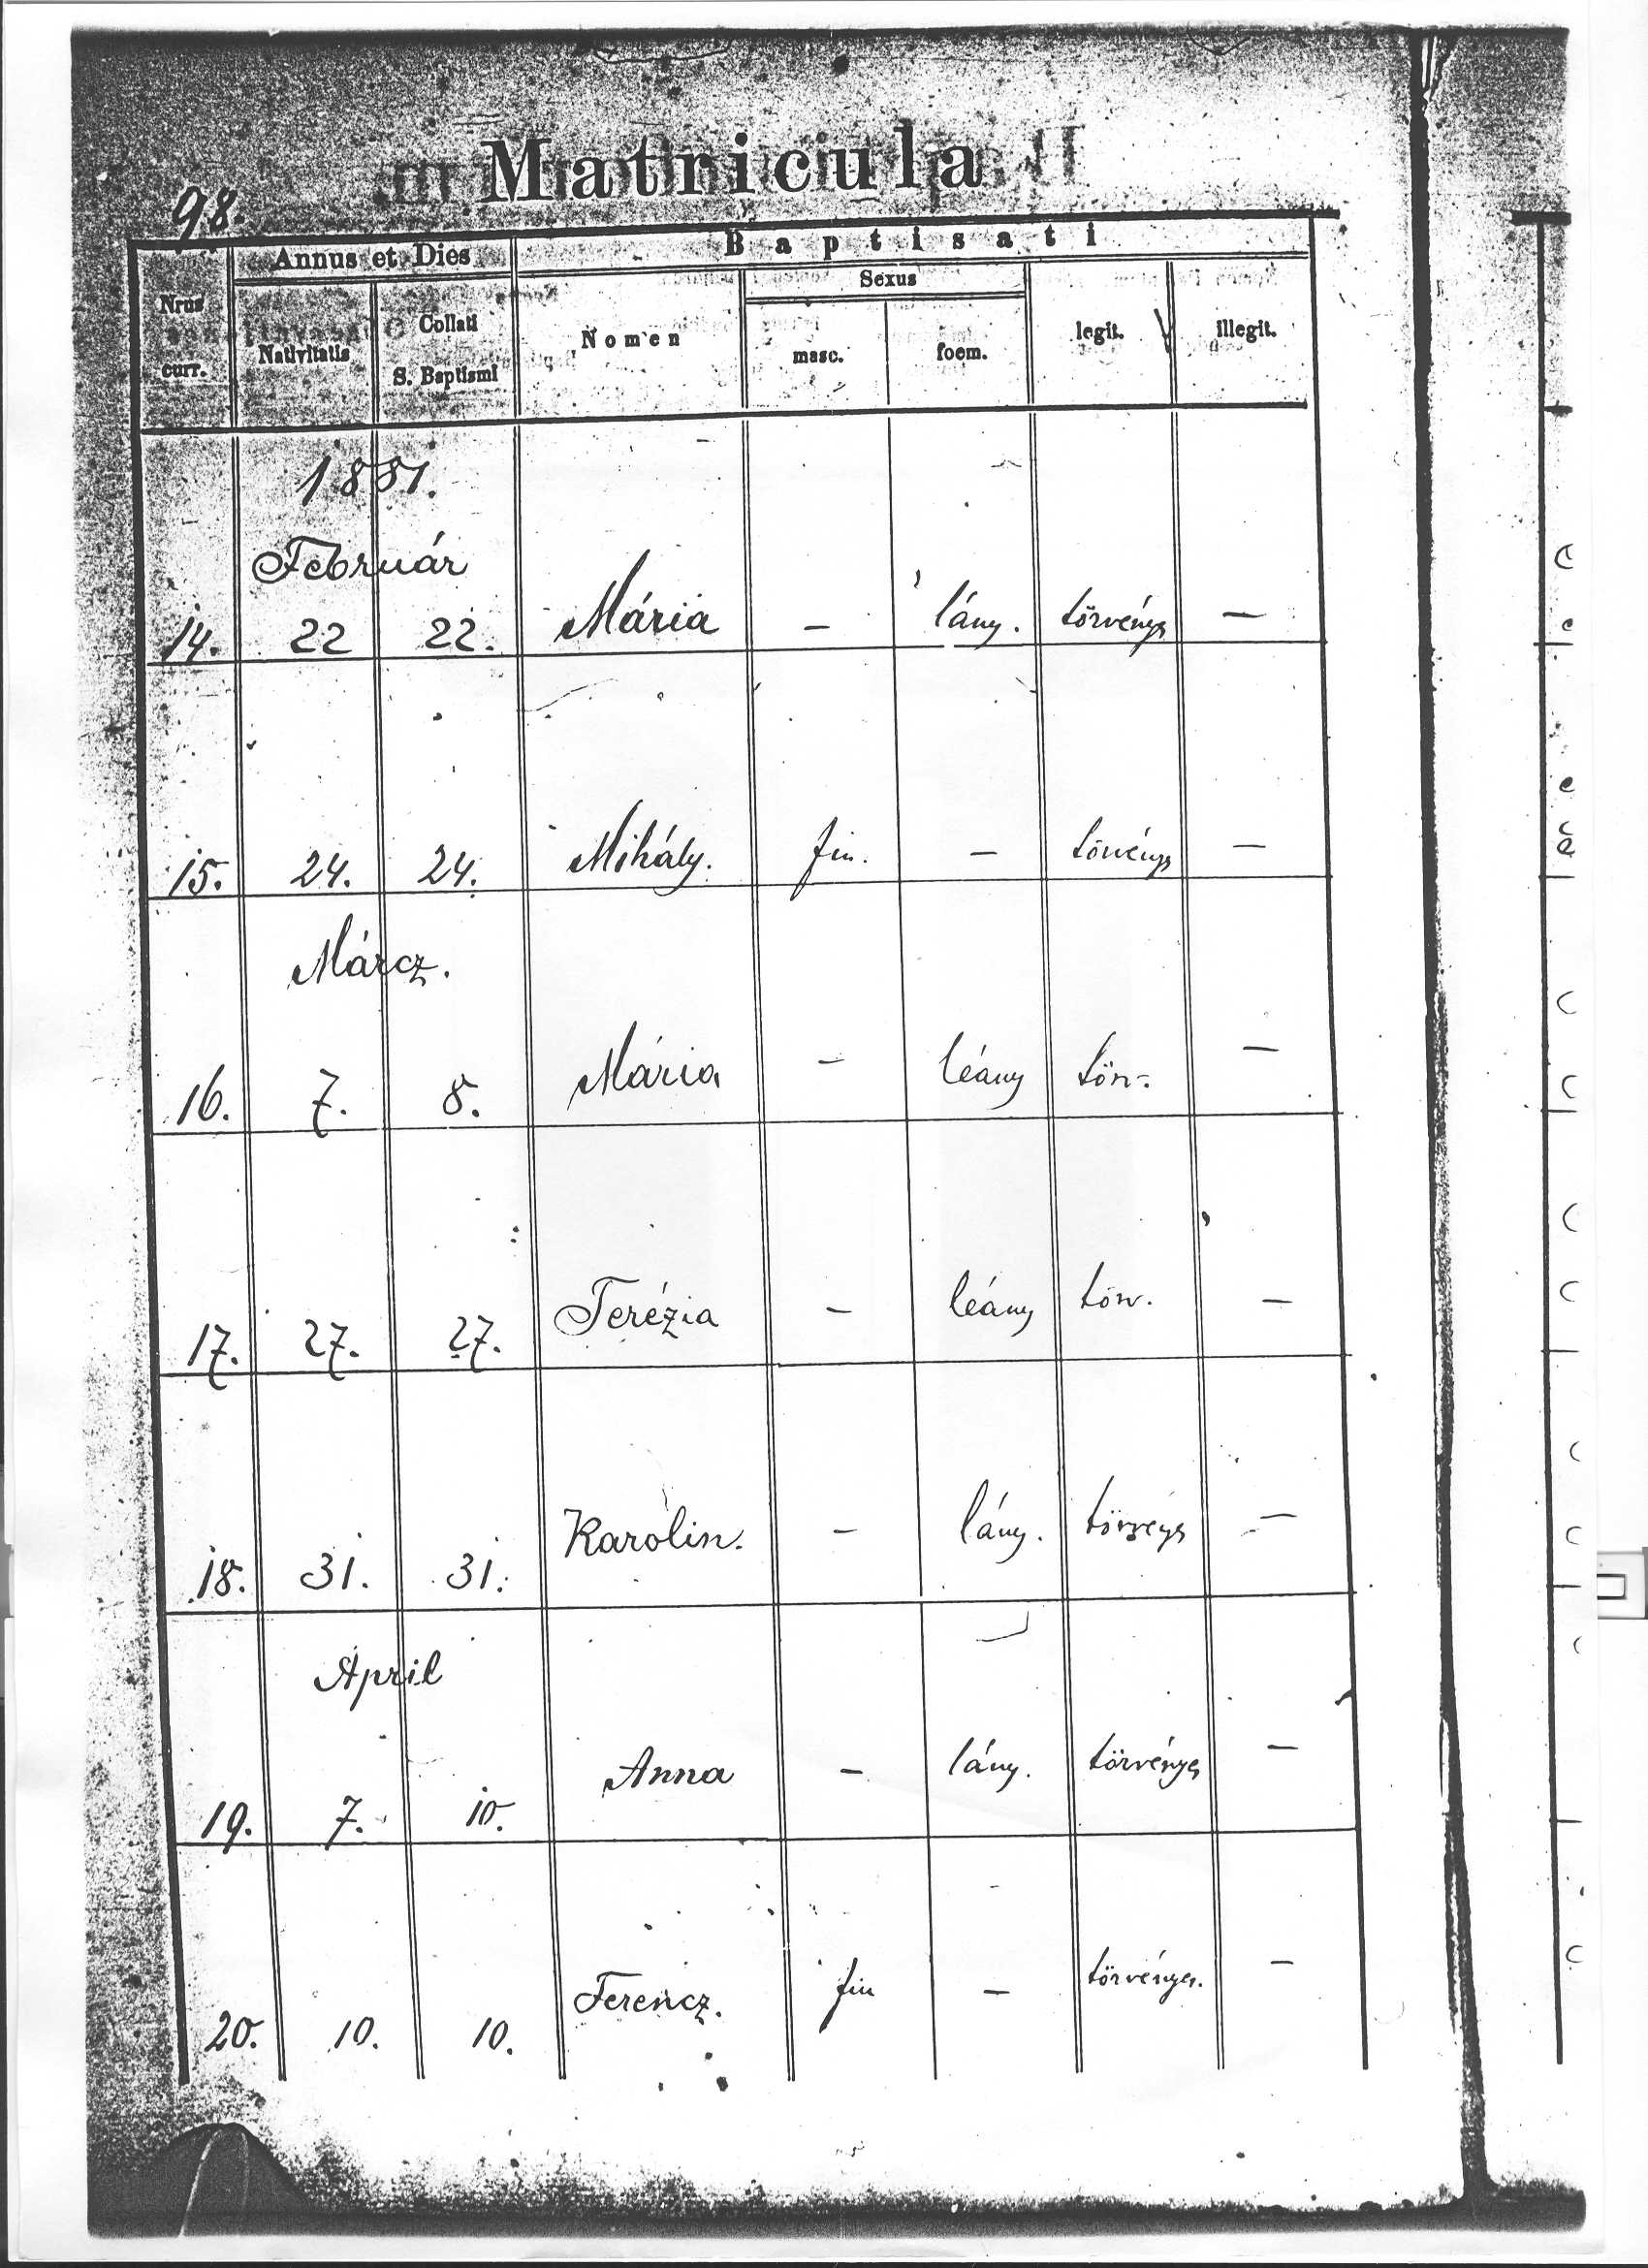 Matricula
98.
Annus et Dies
Baptisati
Nrus curr.
Nativitatis
Collati S. Baptismi
Nomen
Sexus
masc.
foem.
legit.
illegit.
1881.
Február
14. 22 22. Mária – lány. törvénys –
15. 24. 24. Mihály. fiu. – törvénys –
Márcz.
16. 7. 8. Mária – léány törv. –
17. 27. 27. Terézia – léány törv. –
18. 31. 31. Karolin. – lány. törvénys –
April
19. 7. 10. Anna – lány. törvényes –
20. 10. 10. Ferencz. fiu – törvényes. –